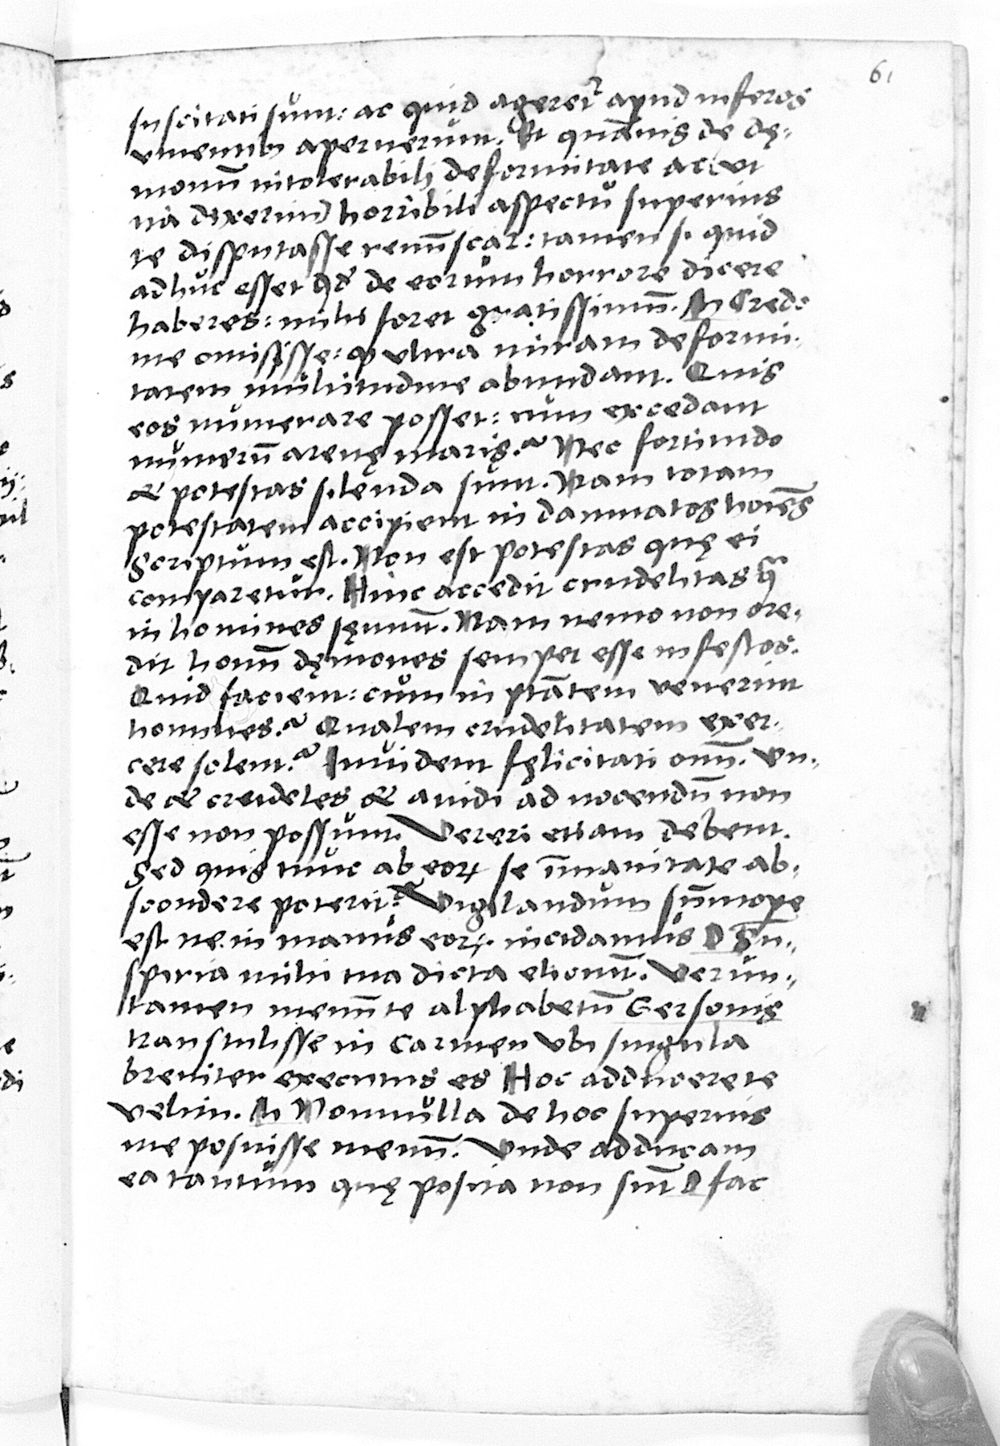 61
suscitati sunt: ac quid ageret᷑ apud inferos
viventibꝫ aperuerunt. Et quāvis de dę-
monū intolerabili deformitate ac vt
ita dixerim) horribili aspectu superius
te disputasse reminiscar: tamen si quid
adhuc esset qd̓ de eorum horrore dicere
haberes: mihi foret gratissimū. M Credo
me omisisse: ꝙ vltra miram deformi-
tatem multitudine abundant. Quis
eos numerare posset: cum excedant
numerū arenę maris? Nec fortitudo
& potestas silenda sunt. Nam totam
potestatem accipient in damnatos hoīes
Scriptum est. Non est potestas quę ei
comparetur. Hinc accedit crudelitas qᷓ
in homines sęviūt. Nam nemo non cre-
dit homū dęmones semper esse infestos.
Quid facient: cum in ptātem venerint
homines? Qualem crudelitatem exer-
cere solent? Invident fęlicitati omī. Vn-
de & crudeles & avidi ad nocendū non
esse non possunt. Vereri etiam debent.
Sed quis nunc ab eoꝝ se īmanitate ab-
scondere poterit? Vigilandum sūmope
est ne in manus eoꝝ incidamus D Su-
spiria mihi tua dicta eliciunt. Verun-
tamen memī te alphabetū Gersonis
transtulisse in Carmen Vbi singula
breviter executus es Hoc adducere te
velim. M Nonnulla de hoc superius
me posuisse memī. Vnde adducam
ea tantum quę posita non sunt D fac